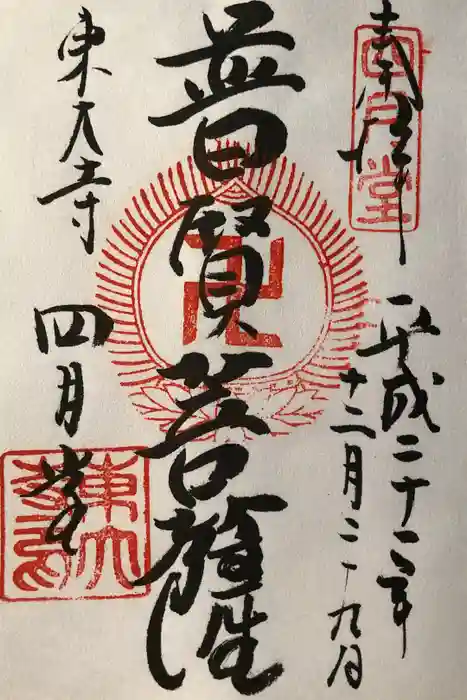 奉拝
四月堂
平成二十二年
十二月二十九日
普賢菩薩
東大寺
四月堂
東大寺印